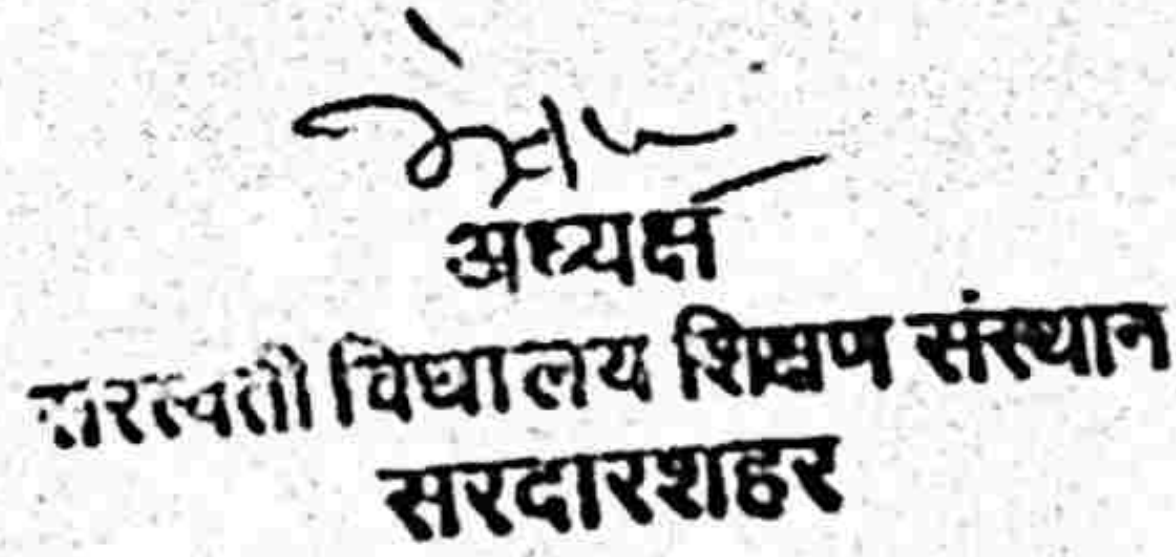 अध्यक्ष
सरस्वती विद्यालय शिक्षण संस्थान
सरदारशहर